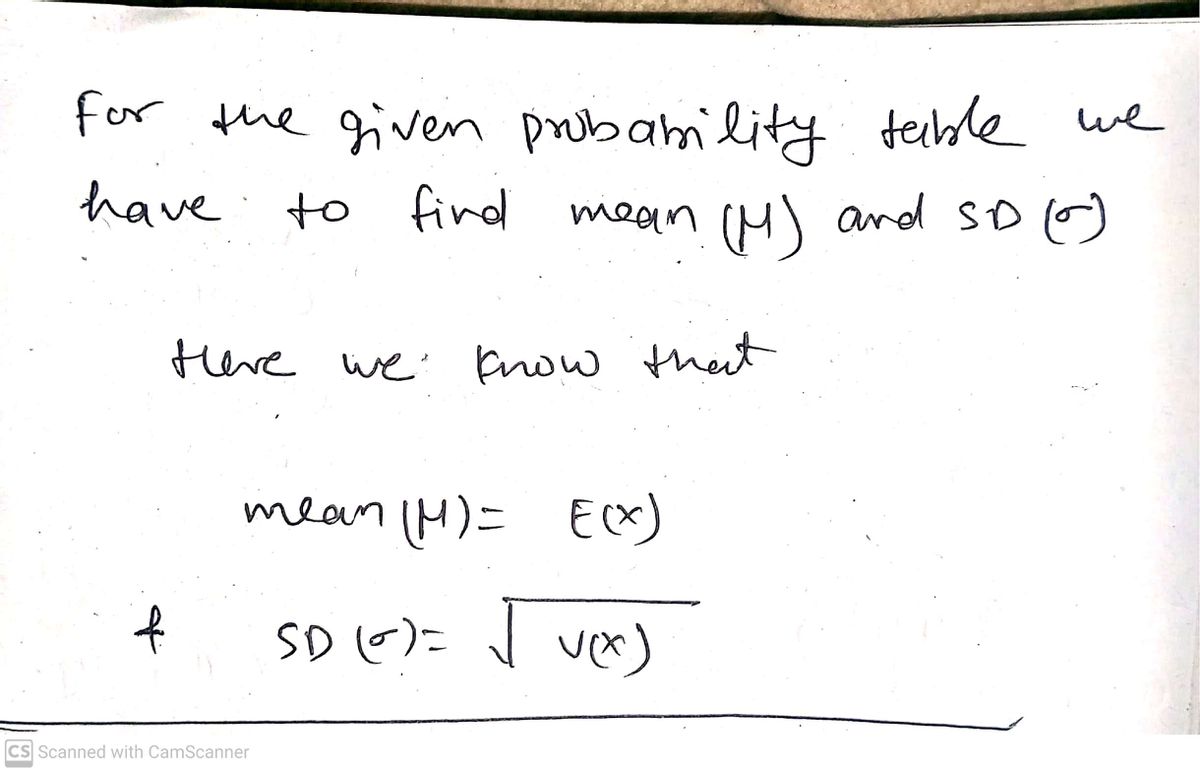 for the given probability table we
have to find mean (μ) and SD (σ)
Here we know that
mean (μ) = E(x)
& SD (σ) = √V(x)
CS Scanned with CamScanner